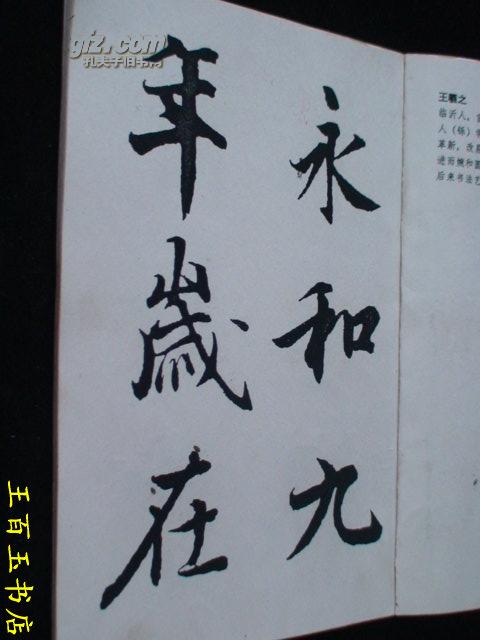 永和九
年歲在
王羲之
临沂人，
人（
革新，改
进而
后来书法艺
孔夫子旧书网
王百玉书店